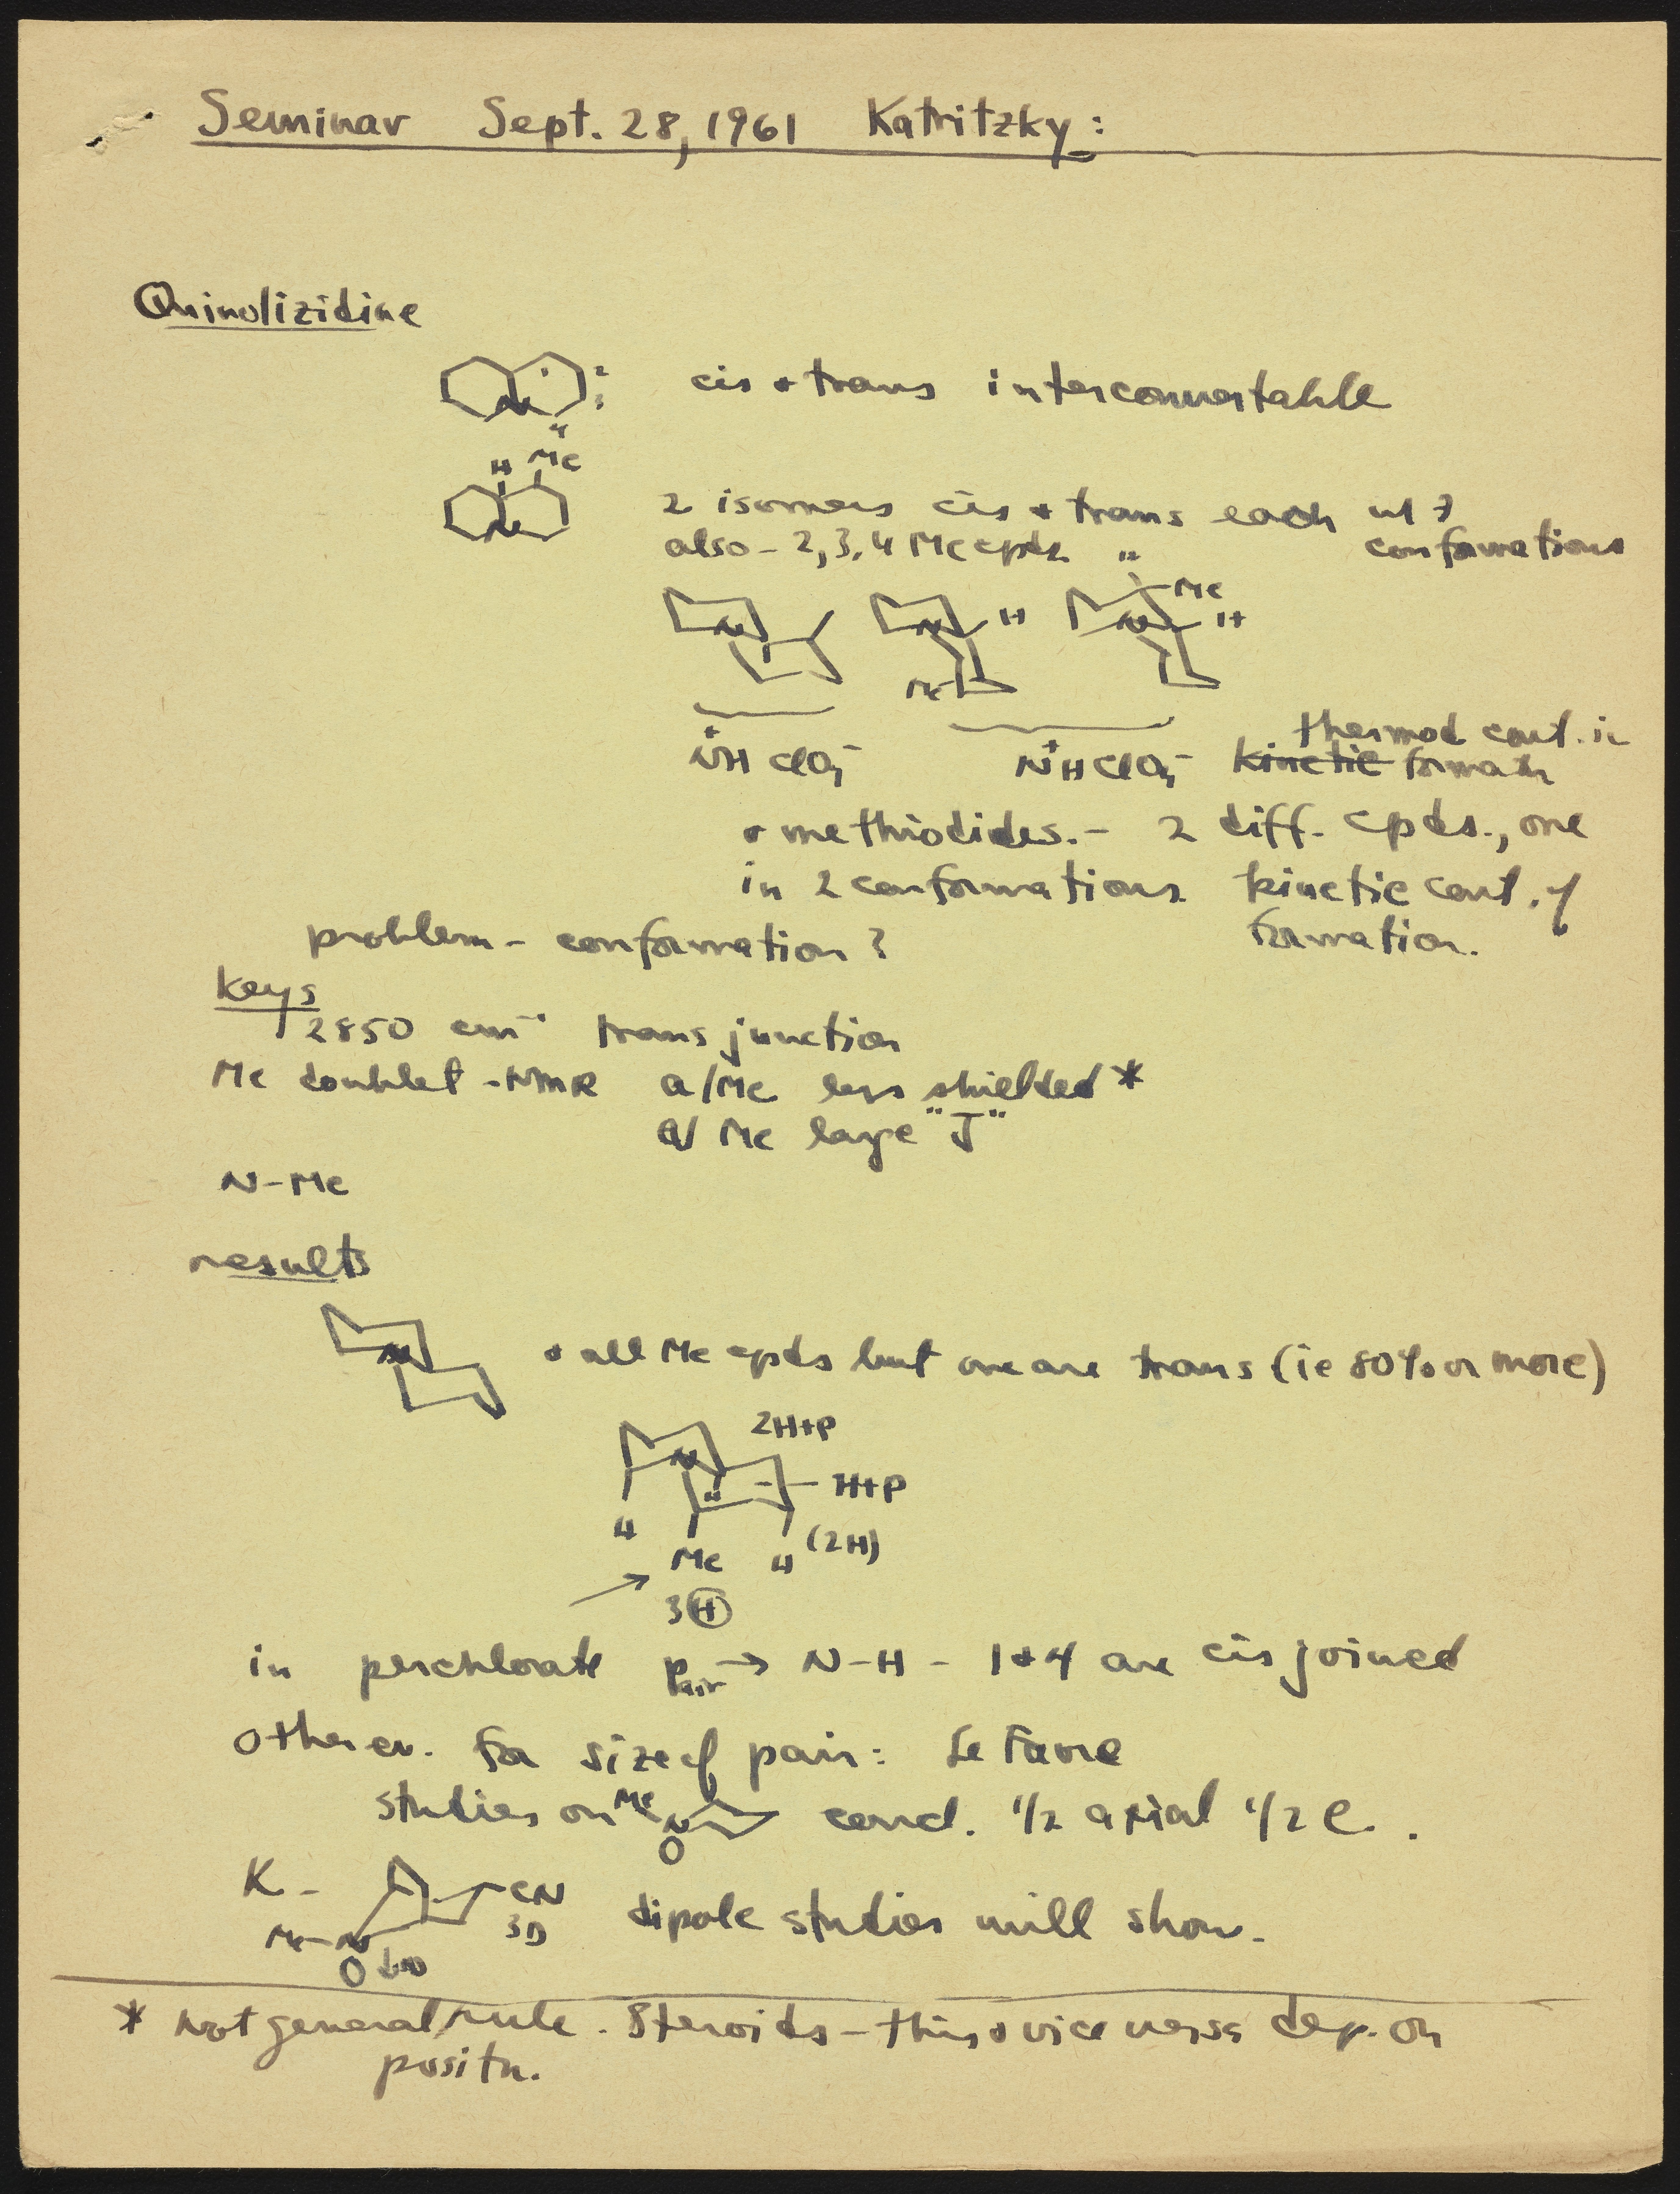 Seminar Sept. 28, 1961 Katritzky:
Quinolizidine
N 2 3 4
cis + trans interconvertable
H Me
N
2 isomers cis + trans each w/ 7
conformations
also - 2, 3, 4 Me cpds "
N N H Me N Me H
N⁺H ClO₄⁻ N⁺H ClO₄⁻ thermod cont. in
kinetic formatn
+ methiodides. - 2 diff. cpds., one
in 2 conformations kinetic cont. of
formation.
problem - conformation?
Keys
2850 cm⁻¹ trans junction
Me doublet - NMR a/Me less shielded *
a/ Me large "J"
N-Me
results
N
+ all Me cpds but one are trans (ie 80% or more)
2H+P
N
H+P
H Me H (2H)
3 H
in perchlorate pair → N-H - 1 + 4 are cis joined
other ev. for size of pair: Le Favre
studies on Me N concl. 1/2 axial 1/2 e.
K - CN
3D
Me-N
dipole studies will show.
* not general rule. Steroids - this + vice versa dep. on
positn.